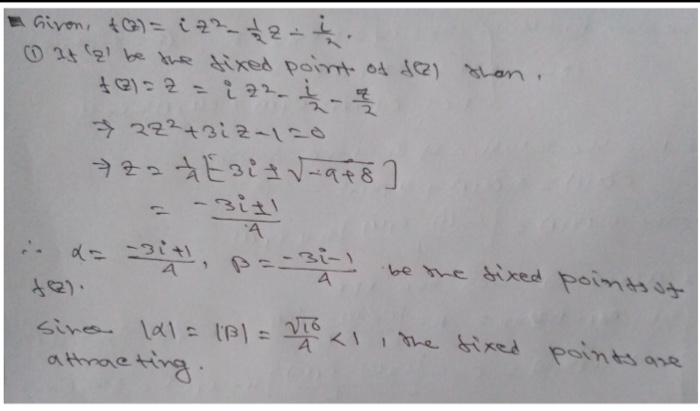 Given, f(z) = i z² - 1/2 z - i/2.
① If 'z' be the fixed point of f(z) then,
f(z) = z = i z² - i/2 - z/2
⇒ 2z² + 3iz - 1 = 0
⇒ z = 1/4 [-3i ± √-9+8]
= -3i±1/4
∴ α = -3i+1/4, β = -3i-1/4 be the fixed points of
f(z).
Since |α| = |β| = √10/4 < 1, the fixed points are
attracting.